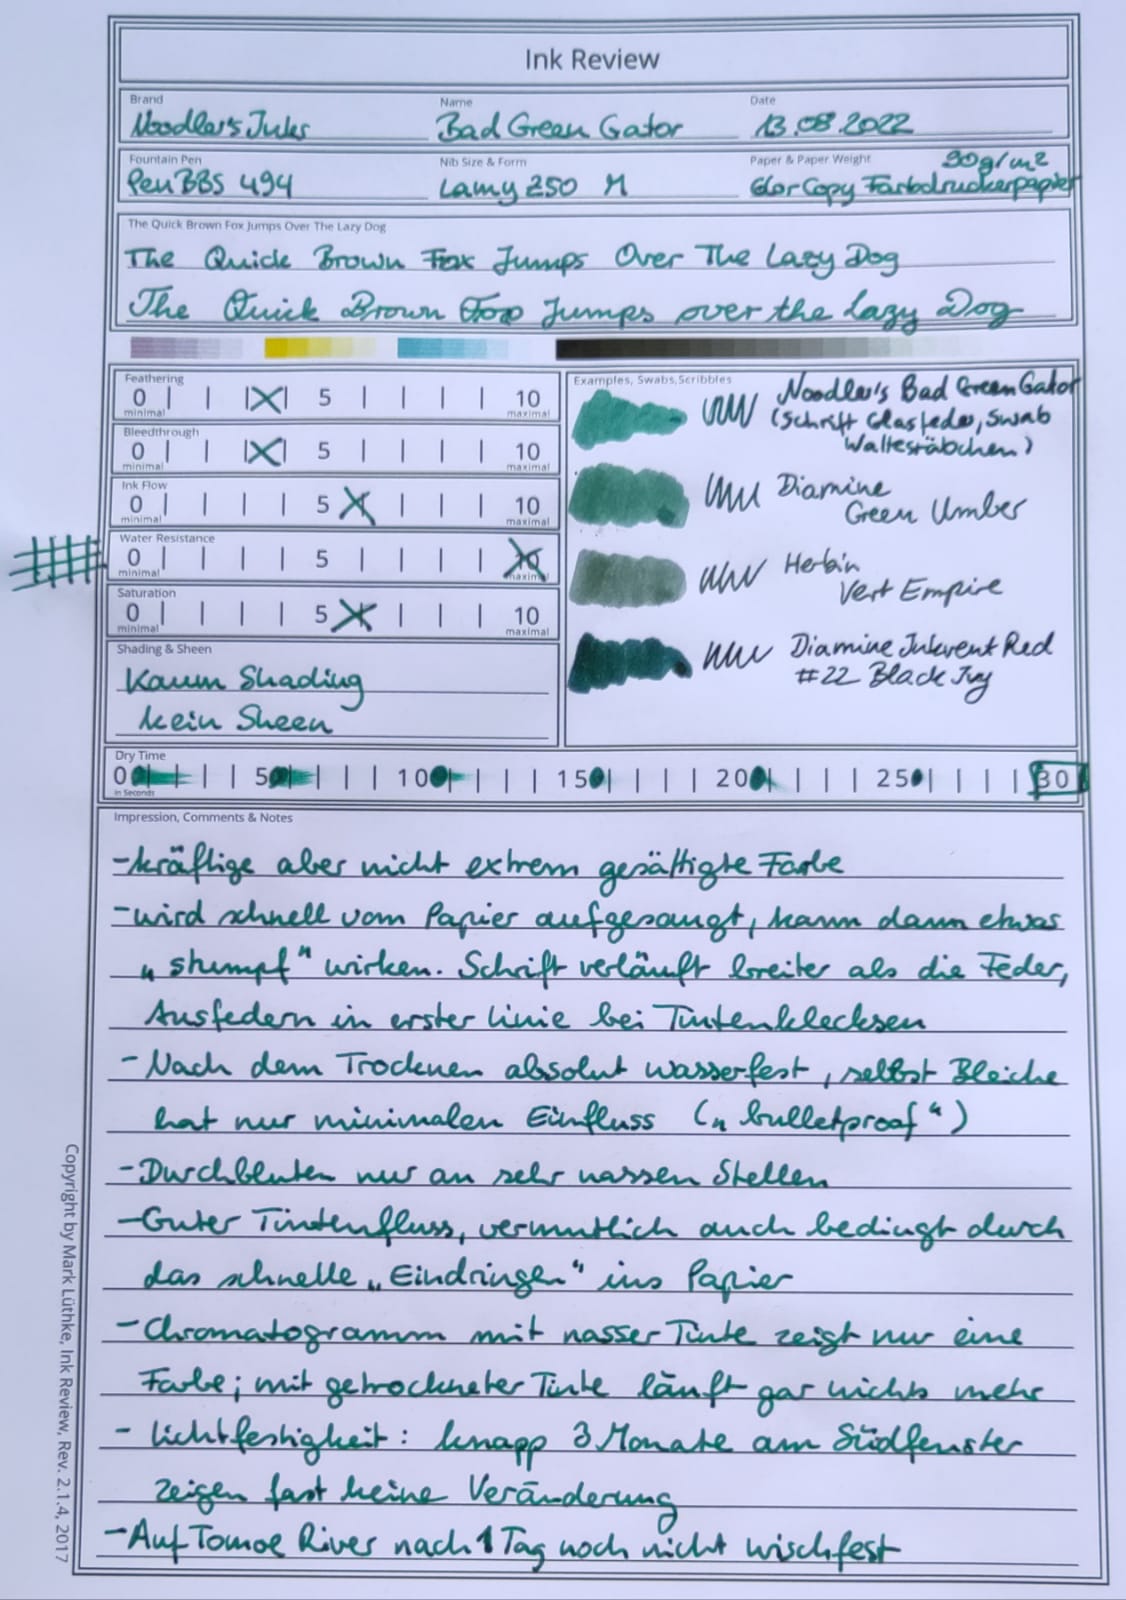 Ink Review
Brand
Noodler's Inks
Name
Bad Green Gator
Date
13.08.2022
Fountain Pen
PenBBS 494
Nib Size & Form
Lamy Z50 M
Paper & Paper Weight
90g/m²
Color Copy Farbdruckerpapier
The Quick Brown Fox Jumps Over The Lazy Dog
The Quick Brown Fox Jumps Over The Lazy Dog
The Quick Brown Fox Jumps over the Lazy Dog
Feathering
0 5 10
minimal maximal
Bleedthrough
0 5 10
minimal maximal
Ink Flow
0 5 10
minimal maximal
Water Resistance
0 5 10
minimal maximal
Saturation
0 5 10
minimal maximal
Shading & Sheen
Kaum Shading
kein Sheen
Examples, Swabs, Scribbles
Noodler's Bad Green Gator
(Schrift Glasfeder, Swab
Wattestäbchen)
Diamine
Green Umber
Herbin
Vert Empire
Diamine Inkvent Red
#22 Black Ivy
Dry Time
0 5 10 15 20 25 30
in Seconds
Impression, Comments & Notes
- kräftige aber nicht extrem gesättigte Farbe
- wird schnell vom Papier aufgesaugt, kann dann etwas
„stumpf“ wirken. Schrift verläuft breiter als die Feder,
Ausfedern in erster Linie bei Tintenklecksen
- Nach dem Trocknen absolut wasserfest, selbst Bleiche
hat nur minimalen Einfluss („bulletproof“)
- Durchbluten nur an sehr nassen Stellen
- Guter Tintenfluss, vermutlich auch bedingt durch
das schnelle „Eindringen“ ins Papier
- Chromatogramm mit nasser Tinte zeigt nur eine
Farbe; mit getrockneter Tinte läuft gar nichts mehr
- Lichtfestigkeit: knapp 3 Monate am Südfenster
zeigen fast keine Veränderung
- Auf Tomoe River nach 1 Tag noch nicht wischfest
Copyright by Mark Lüthke, Ink Review, Rev. 2.1.4, 2017